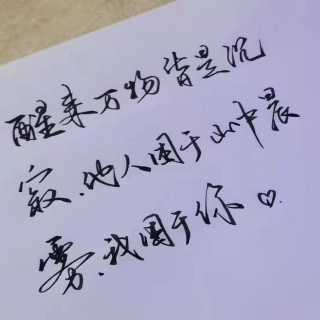 醒来万物皆是沉
寂、他人困于山中晨
雾、我困于你♡.